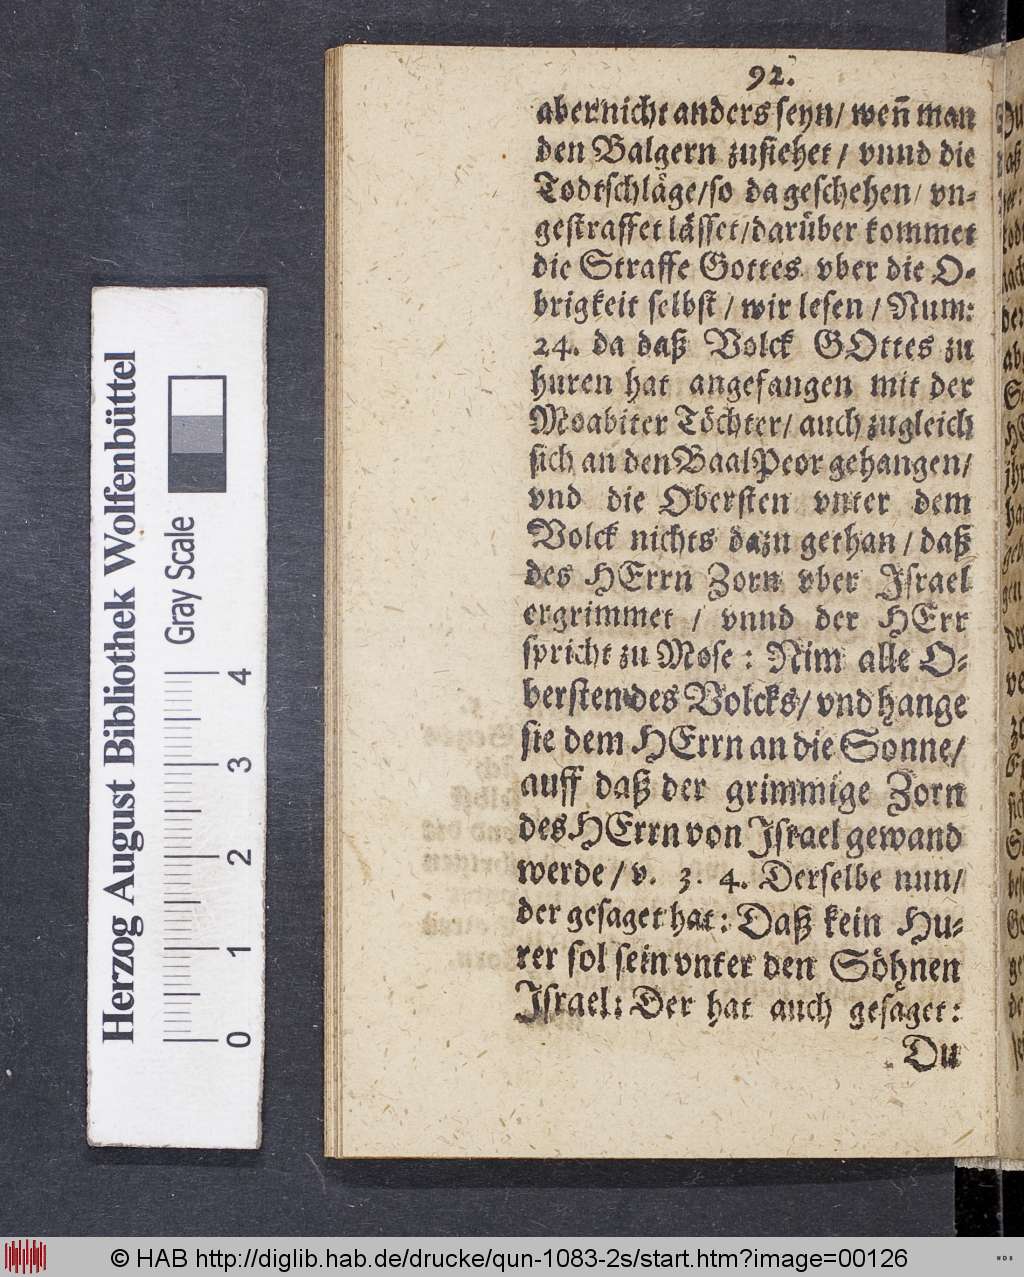 92.
aber nicht anders seyn / weñ man
den Balgern zusiehet / vnnd die
Todtschläge / so da geschehen / vn-
gestraffet lässet / darüber kommet
die Straffe Gottes vber die O-
brigkeit selbst / wir lesen / Num:
24. da daß Volck GOttes zu
huren hat angefangen mit der
Moabiter Töchter / auch zugleich
sich an den Baal Peor gehangen /
vnd die Obersten vnter dem
Volck nichts dazu gethan / daß
des HErrn Zorn vber Israel
ergrimmet / vnnd der HErr
spricht zu Mose : Nim alle O-
bersten des Volcks / vnd hange
sie dem HErrn an die Sonne /
auff daß der grimmige Zorn
des HErrn von Israel gewand
werde / v. 3. 4. Derselbe nun /
der gesaget hat : Daß kein Hu-
rer sol sein vnter den Söhnen
Israel : Der hat auch gesaget :
Du
Herzog August Bibliothek Wolfenbüttel
Gray Scale
0 1 2 3 4
© HAB http://diglib.hab.de/drucke/qun-1083-2s/start.htm?image=00126